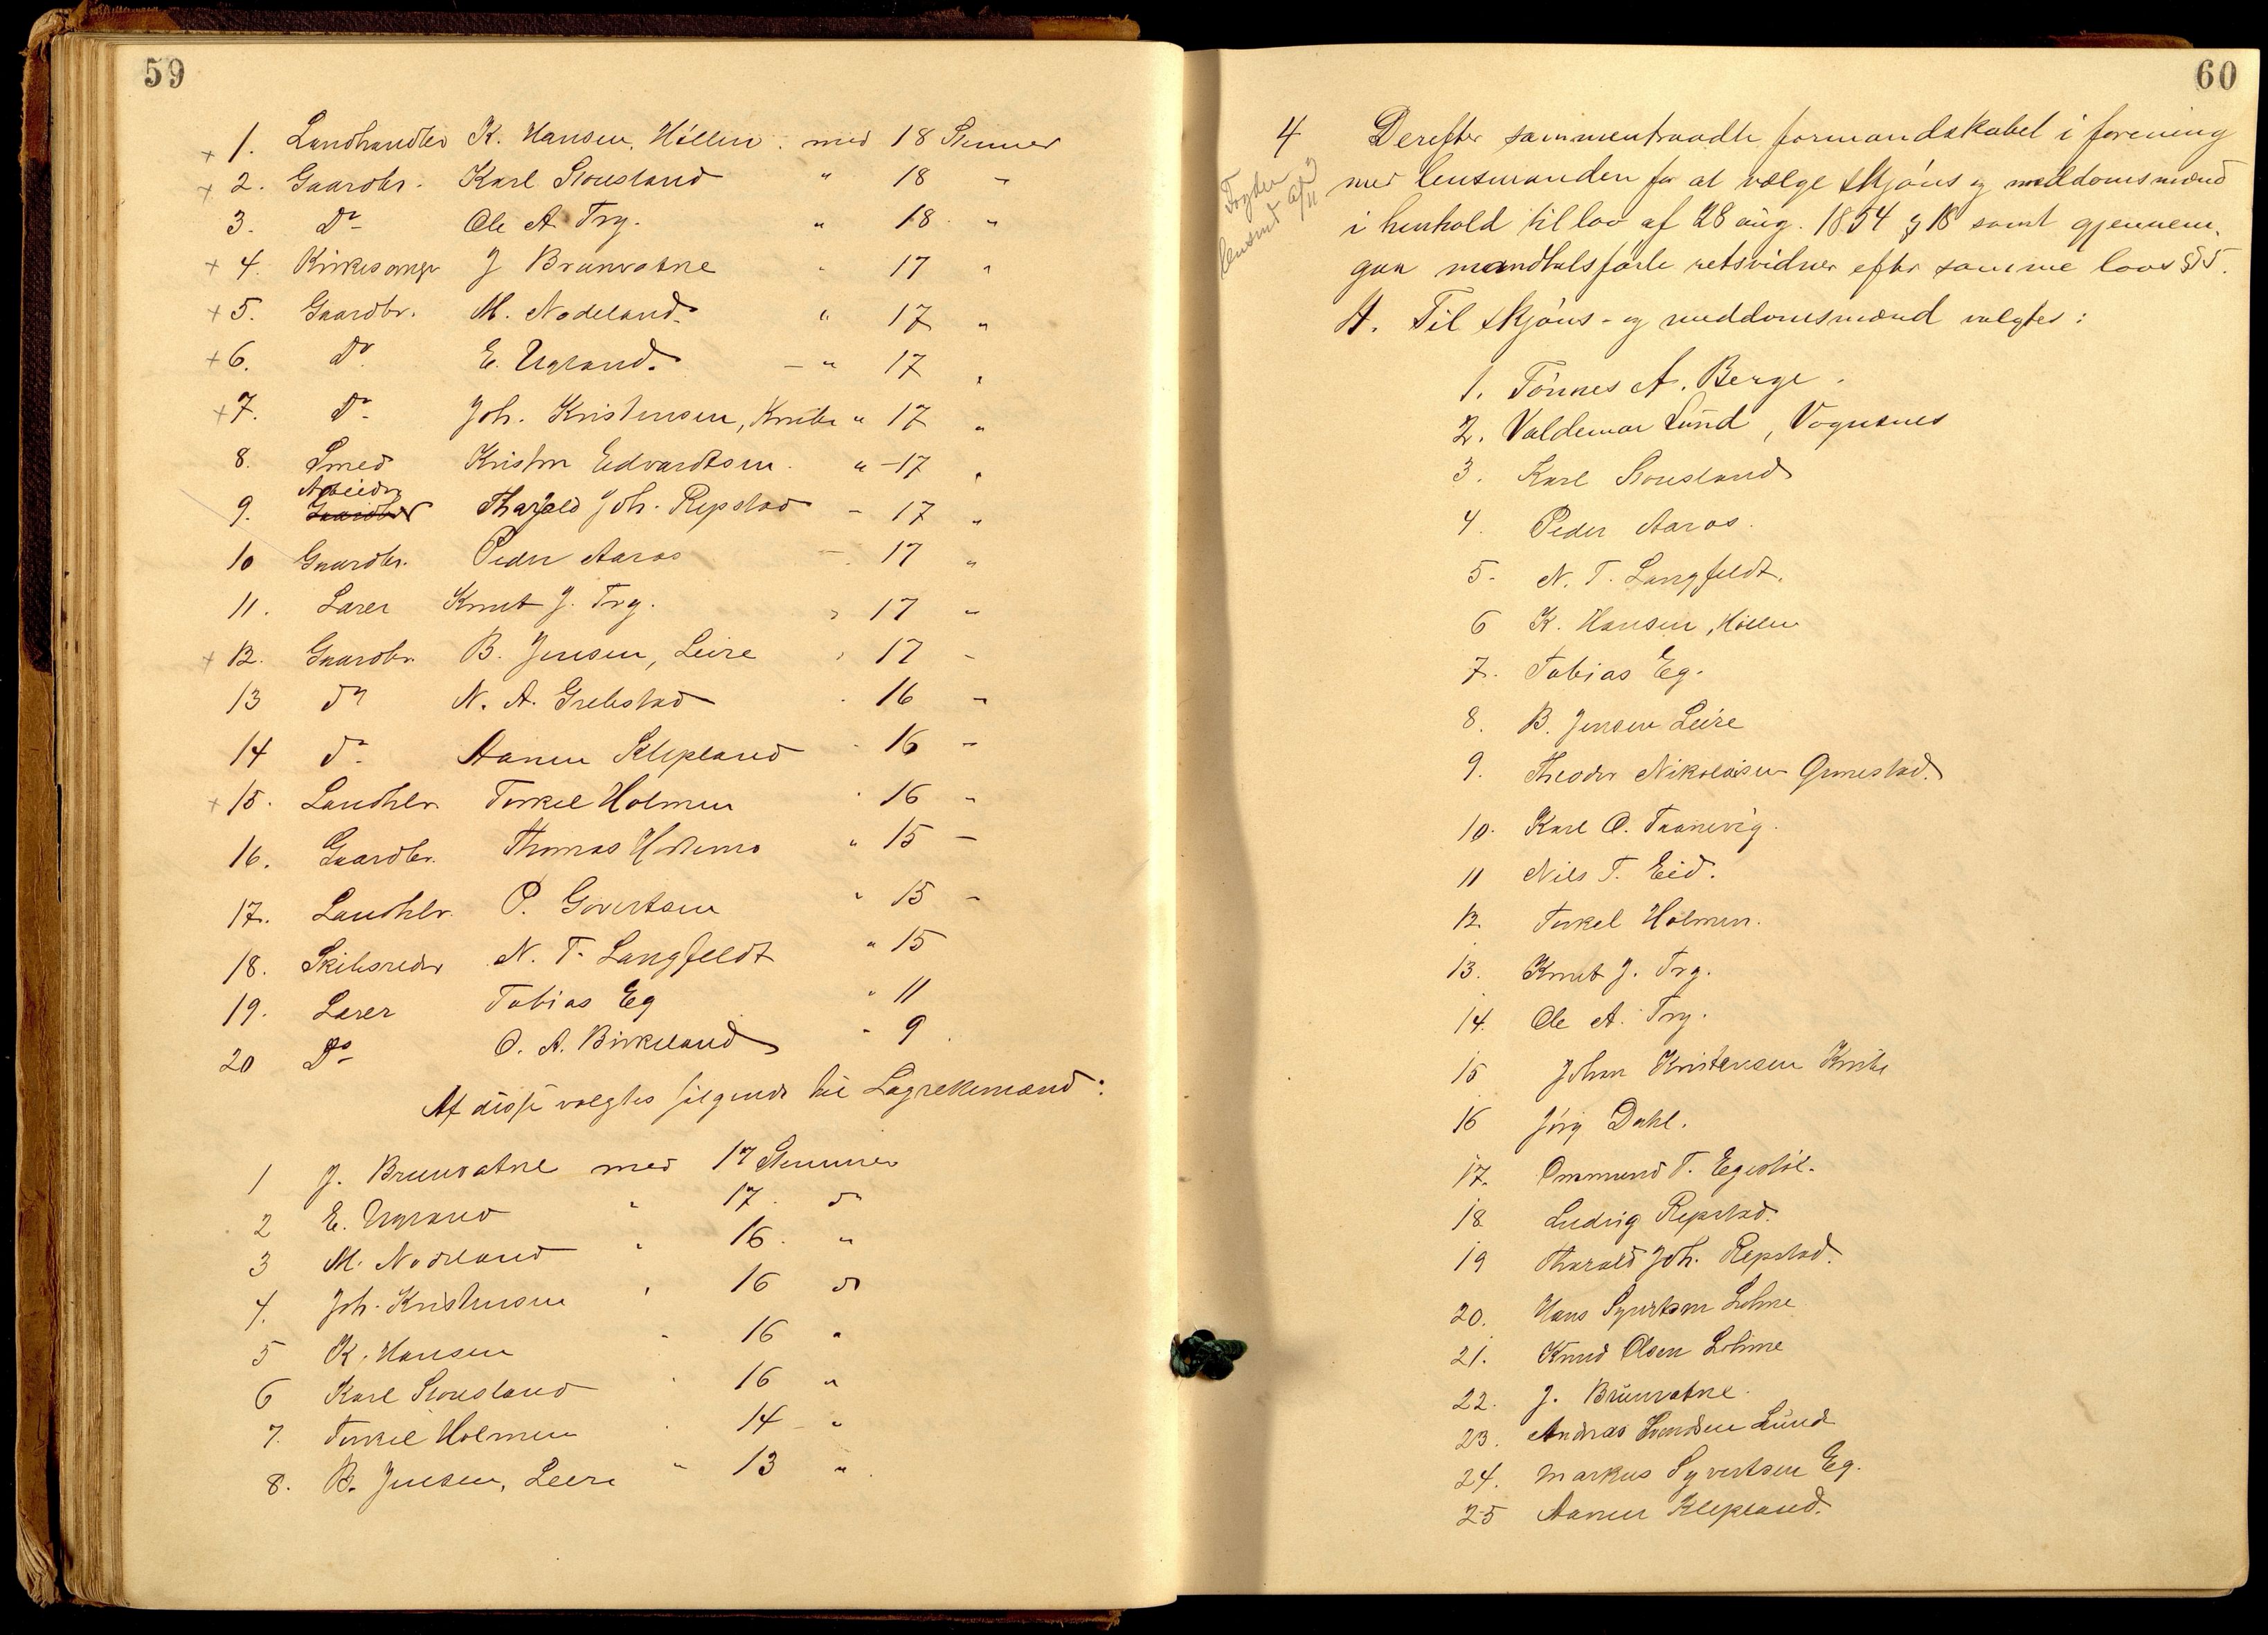 59
1. Landhandler K. Hansen, Höllen med 18 Stemmer
2. Gaardbr. Karl Stousland " 18 "
3. Do Ole A. Try. " 18 "
4. Kirkesanger J Brunvatne " 17 "
5. Gaardbr. M. Nodeland " 17 "
6. Do E. Ugland " 17 "
7. Do Joh. Kristensen, Knibe " 17 "
8. Smed Kristen Edvardtsen " 17 "
Arbeider
9. Gaardbr Tharald Joh. Repstad - 17 "
10 Gaardbr. Peder Aaros - 17 "
11. Lærer Knut J. Try. " 17 "
12. Gaardbr. B. Jensen, Leire " 17 -
13 do N. A. Grebstad " 16 "
14 do Aanen Klepland " 16 "
15. Landhlr. Torkel Holmen " 16 "
16. Gaardbr. Thomas " 15 -
17. Landhlr. P. Govertsen " 15 -
18. Skibsreder N. T. Langfeldt " 15
19. Lærer Tobias Eg " 11
20 Do O. A. Birkeland " 9
Af disse valgtes følgende til Lagrettemænd:
1 J. Brunvatne med 17 Stemmer
2 E. Ugland " 17 do
3 M. Nodeland " 16 "
4. Joh. Kristensen " 16 do
5 K. Hansen " 16 "
6 Karl Stousland " 16 "
7. Torkel Holmen " 14 "
8. B. Jensen, Leere " 13 "
60
4 Derefter sammentraadte formandskabet i forening
med lensmanden for at vælge skjøns og meddomsmænd
i henhold til lov af 28 aug. 1854 § 18 samt gjennem-
gaa mandtalsførte retsvidner efter samme lovs § 5.
Fogden
lensmd
A. Til skjøns- og meddomsmænd valgtes:
1. Tönnes A. Berge.
2. Valdemar Lund, Vognsnes
3. Karl Stousland
4. Peder Aaros.
5. N. T. Langfeldt.
6 K. Hansen, Höllen
7. Tobias Eg.
8. B. Jensen Leire
9. Theodor Nikolaisen Grimestad.
10. Karl O. Taanevig.
11 Nils T. Eid.
12. Torkel Holmen.
13. Knut J. Try.
14. Ole A. Try.
15 Johan Kristensen Knibe
16 Jörg Dahl.
17. Ommund T. Egestöl.
18 Ludvig Repstad.
19 Tharald Joh. Repstad.
20. Hans Syvertsen Lohne
21. Knud Olsen Lohne
22. J. Brunvatne.
23. Andreas Lund
24. Markus Syvertsen Eg.
25 Aanen Klepland.